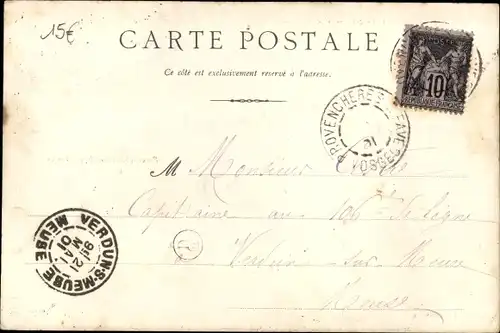 15€
CARTE POSTALE
Ce côté est exclusivement reservé à l'adresse.
10
PROVENCHERES VOSGES
M Monsieur
Capitaine au 106e de ligne
à Verdun-sur-Meuse
Meuse
VERDUN-S-MEUSE
MEUSE
21
MAI
01